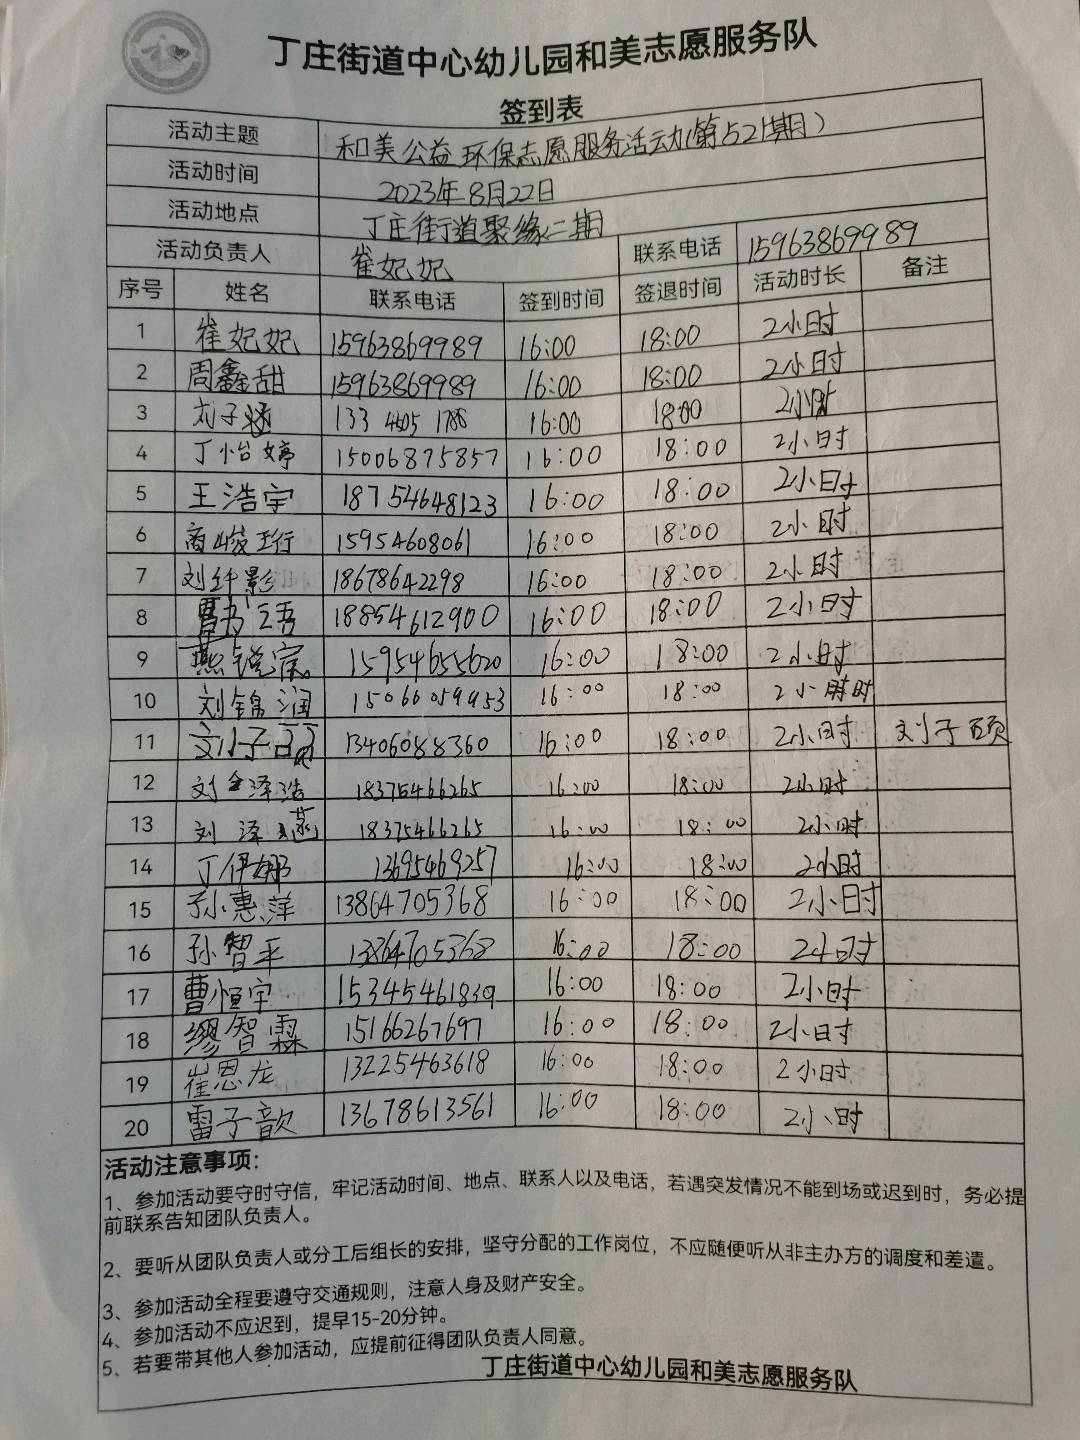 丁庄街道中心幼儿园和美志愿服务队
签到表
活动主题 和美公益环保志愿服务活动(第521期)
活动时间 2023年8月22日
活动地点 丁庄街道聚缘二期
活动负责人 崔妃妃 联系电话 15963869989
序号 姓名 联系电话 签到时间 签退时间 活动时长 备注
1 崔妃妃 15963869989 16:00 18:00 2小时
2 周鑫甜 15963869989 16:00 18:00 2小时
3 刘子涵 133 4605 1788 16:00 18:00 2小时
4 丁怡婷 15006875857 16:00 18:00 2小时
5 王浩宇 18754648123 16:00 18:00 2小时
6 商峻珩 15954608061 16:00 18:00 2小时
7 刘纤影 18678642298 16:00 18:00 2小时
8 18854612900 16:00 18:00 2小时
9 燕锐宸 15954655620 16:00 18:00 2小时
10 刘锦润 15066059953 16:00 18:00 2小时
11 13406088360 16:00 18:00 2小时 刘子硕
12 刘泽浩 18375466265 16:00 18:00 2小时
13 刘泽涵 18375466265 16:00 18:00 2小时
14 丁伊娜 13695469257 16:00 18:00 2小时
15 孙惠萍 13864705368 16:00 18:00 2小时
16 孙智平 13864705368 16:00 18:00 2小时
17 曹恒宇 15345461839 16:00 18:00 2小时
18 缪智霖 15166267697 16:00 18:00 2小时
19 崔恩龙 13225463618 16:00 18:00 2小时
20 雷子歆 13678613561 16:00 18:00 2小时
活动注意事项:
1、参加活动要守时守信，牢记活动时间、地点、联系人以及电话，若遇突发情况不能到场或迟到时，务必提
前联系告知团队负责人。
2、要听从团队负责人或分工后组长的安排，坚守分配的工作岗位，不应随便听从非主办方的调度和差遣。
3、参加活动全程要遵守交通规则，注意人身及财产安全。
4、参加活动不应迟到，提早15-20分钟。
5、若要带其他人参加活动，应提前征得团队负责人同意。
丁庄街道中心幼儿园和美志愿服务队